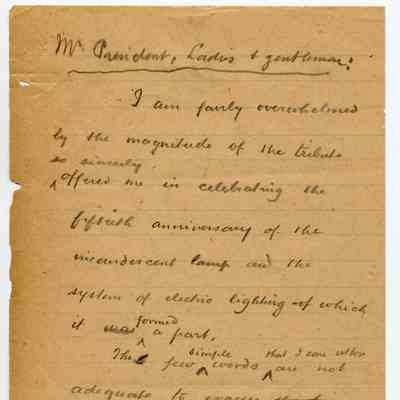 Mr President, Ladies & gentlemen:
I am fairly overwhelmed
by the magnitude of the tribute
so sincerely
offered me in celebrating the
fiftieth anniversary of the
incandescent lamp and the
system of electric lighting of which
formed
it was a part.
simple that I can utter
The few words are not
adequate to